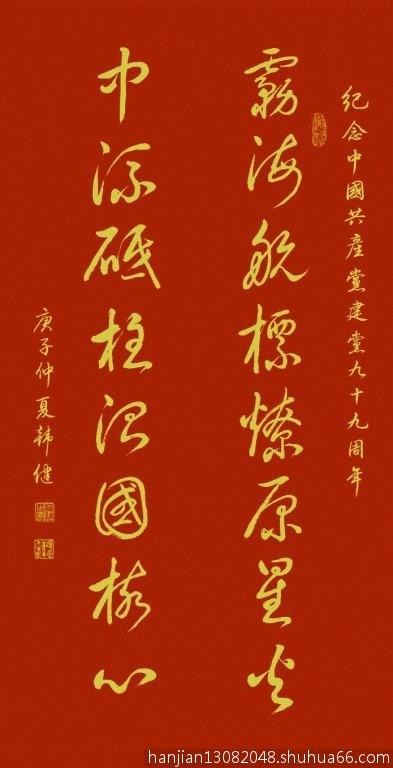 纪念中國共產黨建黨九十九周年
霧海航標燎原星火
中流砥柱治國核心
庚子仲夏韩健
hanjian13082048.shuhua66.com